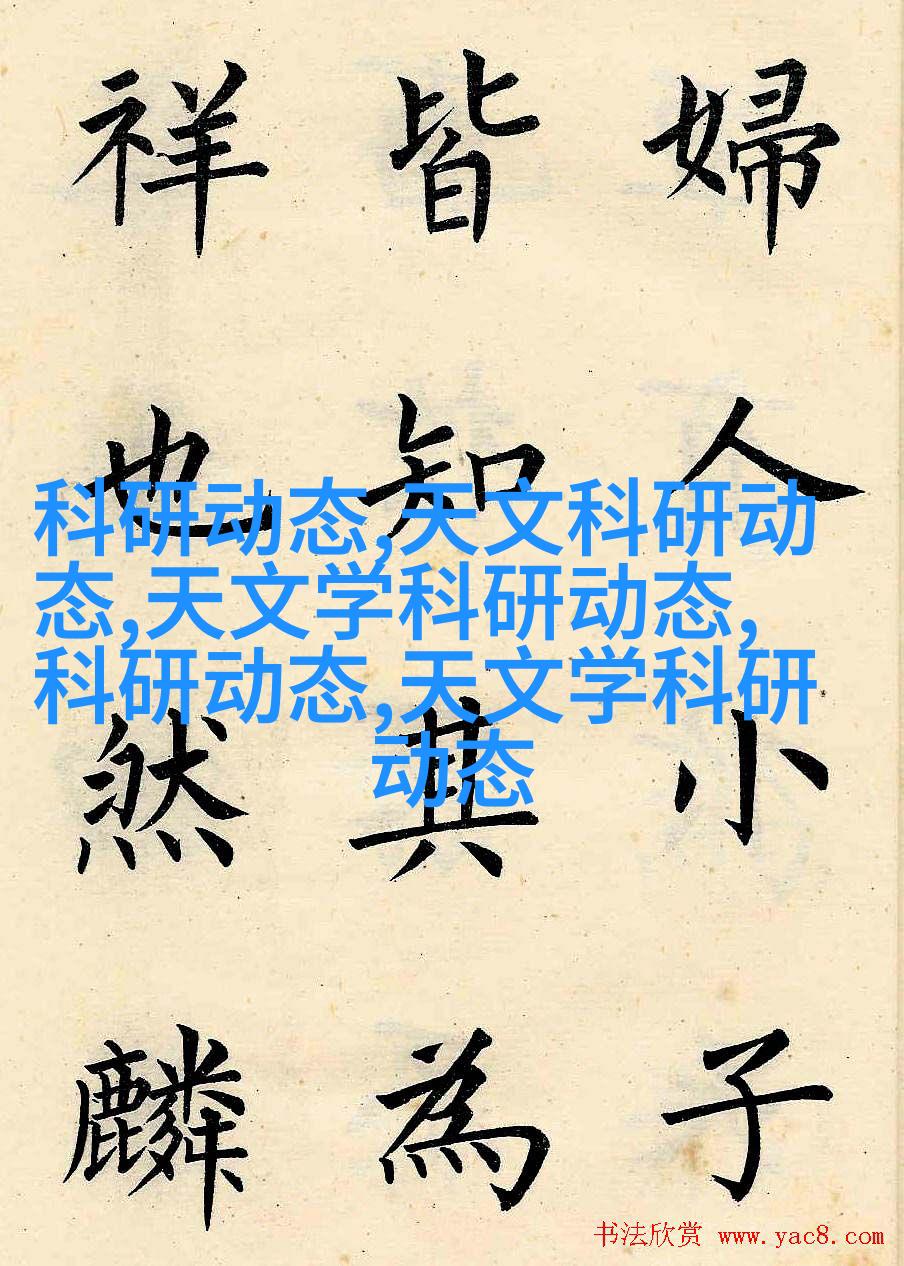 婦人小子
皆知其為
祥也然麟
科研动态,天文科研动
态,天文学科研动态,
科研动态,天文学科研
动态
书法欣赏 www.yac8.com